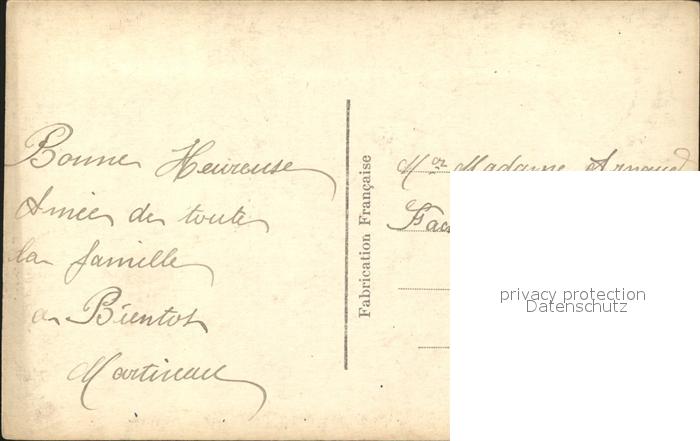 Bonne Heureuse
Année de toute
la famille
a Bientot
Martineau
Fabrication Française
Mr et Madame Arnaud
privacy protection
Datenschutz